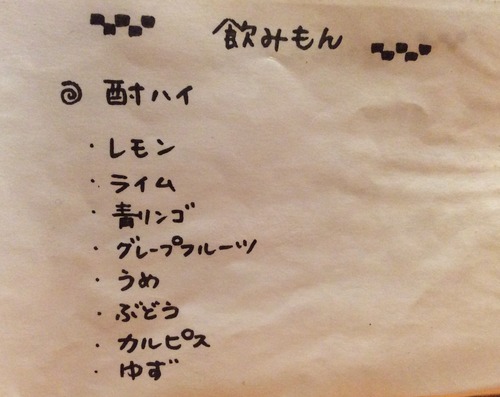 飲みもん
酎ハイ
・レモン
・ライム
・青リンゴ
・グレープフルーツ
・うめ
・ぶどう
・カルピス
・ゆず